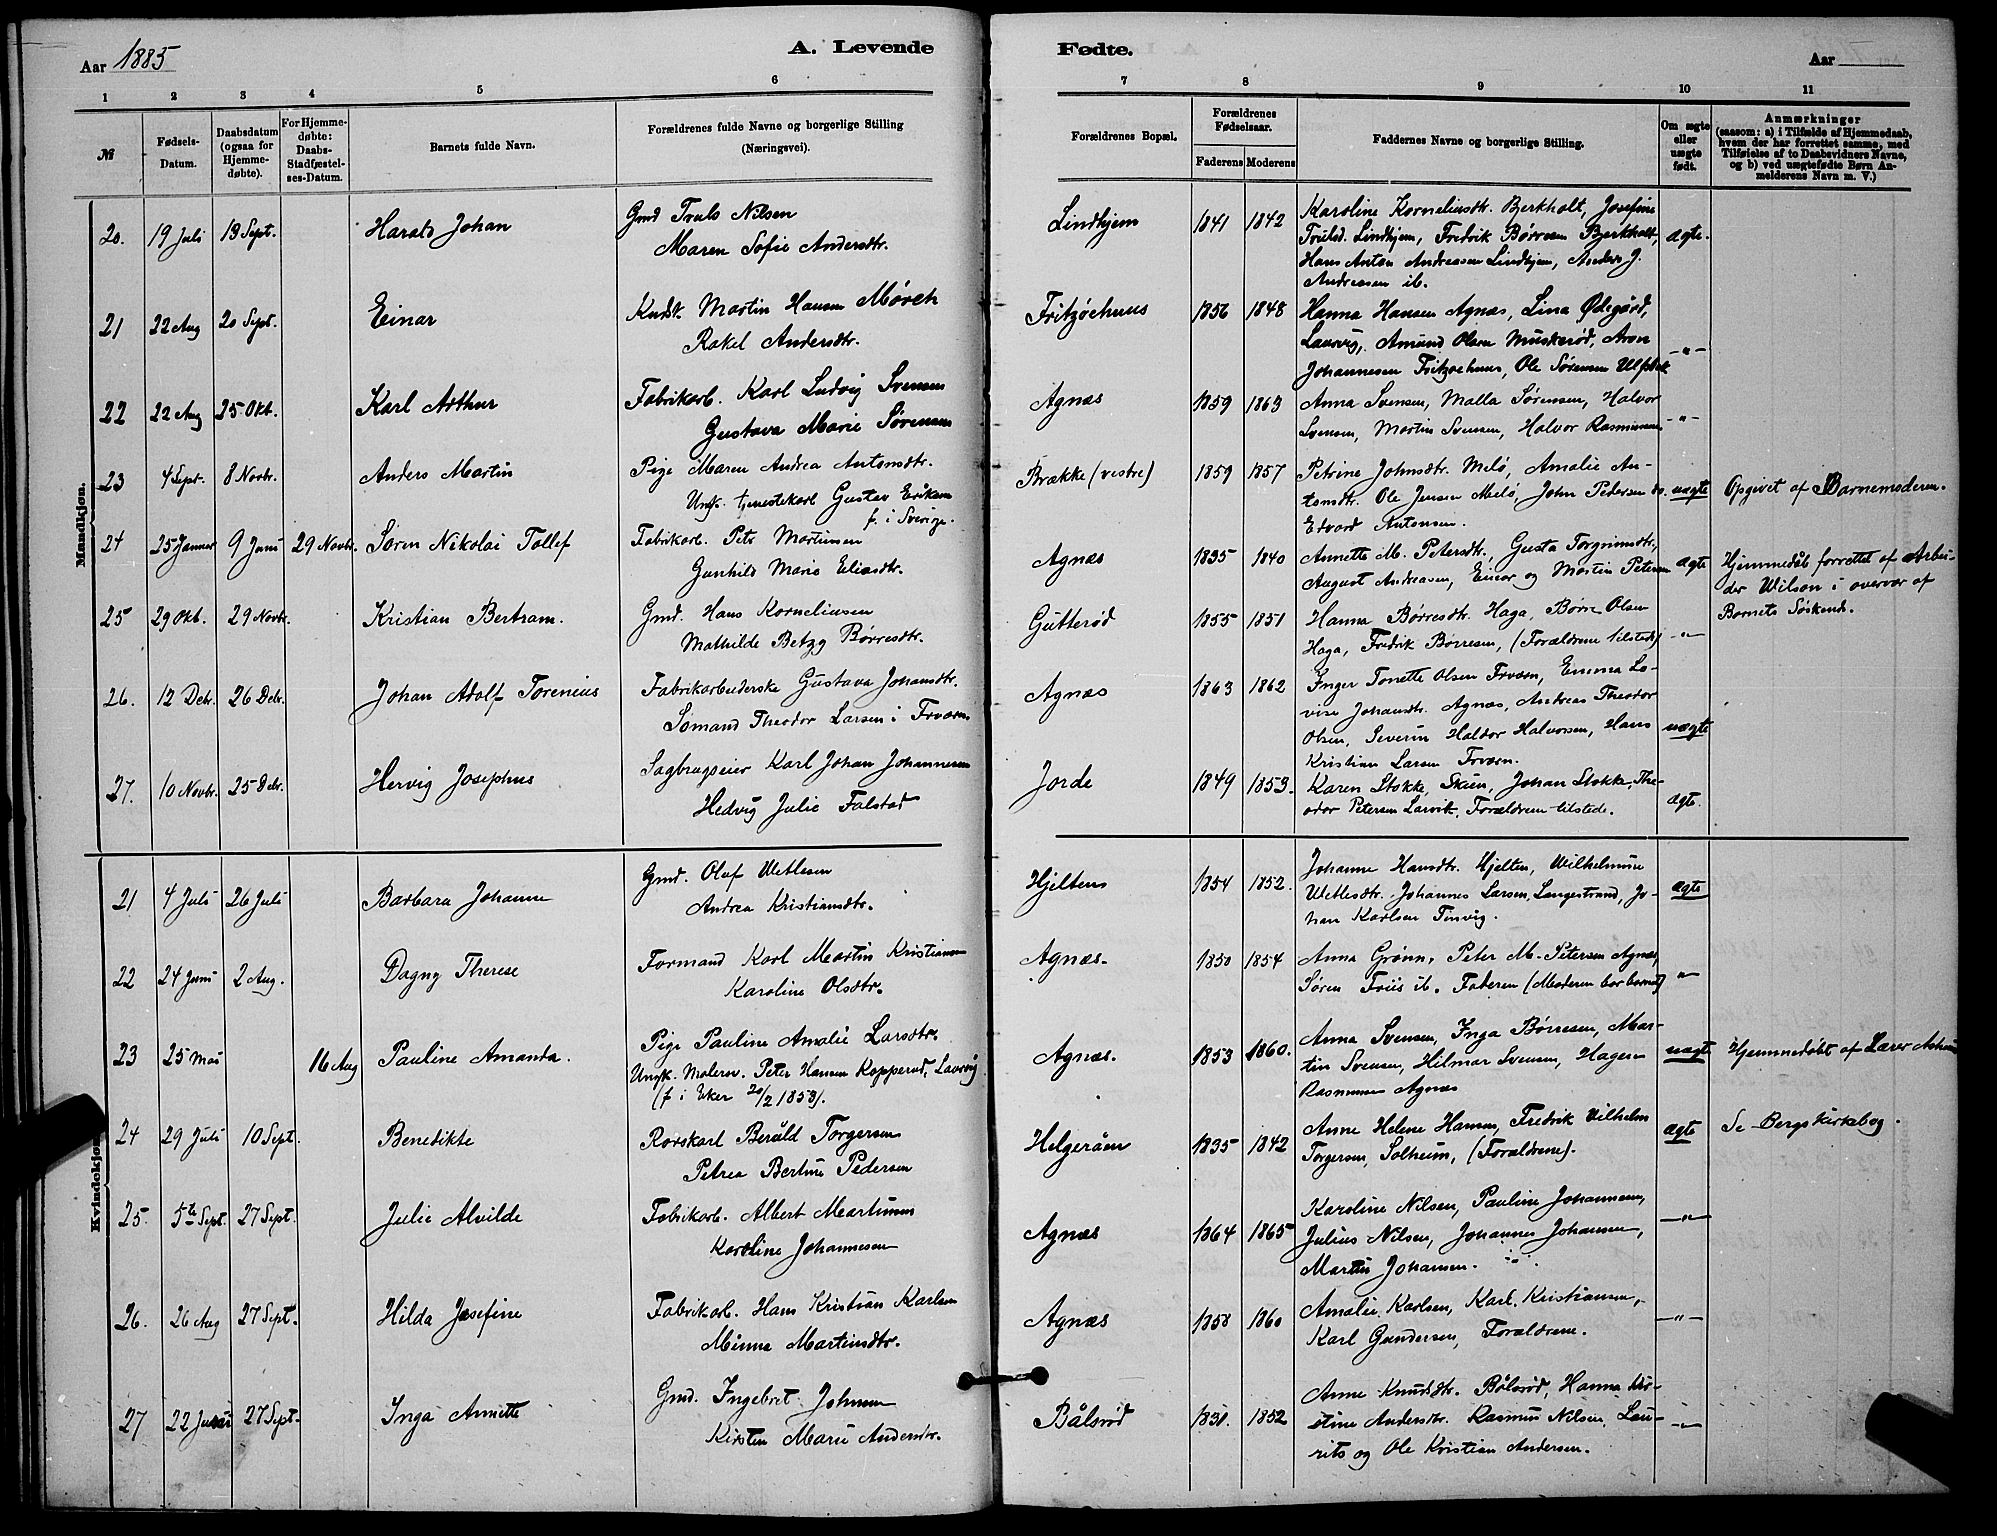 Aar 1885
A. Levende
Fødte.
Aar
1 2 3 4 5 6
7 8 9 10 11
№
Fødsels-
Datum.
Daabsdatum
(ogsaa for
Hjemme-
døbte).
For Hjemme-
døbte:
Daabs-
Stadfæstel-
ses-Datum.
Barnets fulde Navn.
Forældrenes fulde Navne og borgerlige Stilling
(Næringsvei).
Forældrenes Bopæl.
Forældrenes
Fødselsaar.
Faderens Moderens
Faddernes Navne og borgerlige Stilling.
Om ægte
eller
uægte
født.
Anmærkninger
(saasom: a) i Tilfælde af Hjemmedaab,
hvem der har forrettet samme, med
Tilføielse af to Daabsvidners Navne,
og b) ved uægtefødte Børn An-
melderens Navn m. V.)
Mandkjøn.
20. 19 Juli 13 Sept. Harald Johan
Gmd Truls Nilsen
Maren Sofie Andersdtr.
Lindhjem 1841 1842
Karoline Korneliusdtr. Bjerkholt, Josefine
Trulsd. Lindhjem, Fredrik Børresen Bjerkholt,
Hans Anton Andreasen Lindhjem, Anders J.
Andreasen ib.
ægte.
21 22 Aug 20 Sept. Einar
Kudsk Martin Hansen Mørch
Rakel Andersdtr.
Fritzøehuus 1856 1848
Hanna Hansen Agnæs, Lina Ødegård,
Laurvig, Amund Olsen Muskerød, Aron
Johannesen Fritzøehuus, Ole Sørensen
-"-
22 22 Aug 25 Okt. Karl Arthur
Fabrikarb. Karl Ludvig Svensen
Gustava Marie Sørensen
Agnæs 1859 1863
Anna Svensen, Malla Sørensen, Halvor
Svensen, Martin Svensen, Halvor Rasmussen
-"-
23 4 Sept. 8 Novbr. Anders Martin
Pige Maren Andrea Antonsdtr.
Ungk. tjenestekarl Gustav Eriksen
f. i Sverige.
Brække (vestre) 1859 1857
Petrine Johnsdtr. Melø, Amalie An-
tonsdtr. Ole Jensen Melø, John Pedersen do.
Edvard Antonsen.
uægte
Opgivet af Barnemoderen.
24 25 Januar 9 Juni 29 Novbr. Søren Nikolai Tollef
Fabrikarb. Petr Martinsen
Gunhild Marie Eliasdtr.
Agnæs 1835 1840
Annette M. Petersdtr., Gusta Torgrimsdtr,
August Andreasen, Einar og Martin Petersen
ægte
Hjemmedøbt forrettet af Arbei-
der Wilson i overvær af
Barnets Søskende.
25 29 Okt. 29 Novbr. Kristian Bertram.
Gmd. Hans Korneliusen
Mathilde Betzy Børresdtr.
Gutterød 1855 1851
Hanna Børresdtr. Haga, Børre Olsen
Haga, Fredrik Børresen, (Forældrene tilstede)
-"-
26. 12 Debr. 26 Debr. Johan Adolf Torenius
Fabrikarbeiderske Gustava Johansdtr.
Sømand Theodor Larsen i
Agnæs 1863 1862
Inger Tonette Olsen Emma Lo-
vise Johansdtr. Agnæs, Andreas Theodor
Olsen, Severin Haldor Halvorsen, Hans
Kristian Larsen
uægte
27. 10 Novbr. 25 Debr. Hervig Josephus
Sagbrugseier Karl Johan Johannesen
Hedvig Julie Falstad
Jorde 1849 1853.
Karen Stokke, Skien, Johan Stokke, The-
odor Petersen Larvik, Forældrene tilstede.
ægte.
Kvindekjøn
21 4 Juli 26 Juli Barbara Johanne
Gmd. Olaf Wetlesen
Andrea Kristiansdtr.
Hjelten 1854 1852.
Johanne Hansdtr. Hjelten, Wilhelmine
Wetlesdtr. Johannes Larsen, Langestrand, Jo-
han Karlsen Tinvig.
ægte
22 24 Juni 2 Aug. Dagny Therese
Formand Karl Martin Kristiansen
Karoline Olsdtr.
Agnæs. 1850 1854
Anna Grønn, Peter M. Petersen Agnæs,
Søren Friis ib. Faderen (Moderen bar barnet)
"
23 25 Mai 16 Aug Pauline Amanda.
Pige Pauline Amalie Larsdtr.
Ungk. Malersv. Peter Hansen Kopperud, Laurvig
(f. i Eker 20/2 1853).
Agnæs. 1853 1860.
Anna Svensen, Inga Børresen, Mar-
tin Svensen, Hilmar Svensen, Hagen
Rasmussen Agnæs
uægte
Hjemmedøbt af Lærer
24 29 Juli 10 Sept. Benedikte
Rorskarl Berald Torgersen
Petrea Bertine Pedersen
Helgeråen 1835 1842
Anne Helene Hansen, Fredrik Vilhelm
Torgersen, Solheim, (Forældrene).
ægte
Se Bergs kirkebog.
25. 5te Sept. 27 Sept. Julie Alvilde
Fabrikarb. Albert Martinsen
Karoline Johannesen
Agnæs 1864 1865
Karoline Nilsen, Pauline Johannesen,
Julius Nilsen, Johannes Johansen,
Martin Johansen.
-"-
26. 26 Aug 27 Sept. Hilda Josefine
Fabrikarb. Hans Kristian Karlsen
Minna Martinsdtr.
Agnæs 1858 1860
Amalie Karlsen, Karl Kristiansen,
Karl Gundersen, Forældrene.
-"-
27 22 27 Sept. Inga Annette
Gmd. Ingebret Johnsen
Kirsten Marie Andersdtr.
Bålsrød 1831. 1852
Anne Knudsdtr. Bålsrød, Hanna Kir-
stine Andersdtr. Rasmus Nilsen, Lau-
rits og Ole Kristian Andersen.
-"-